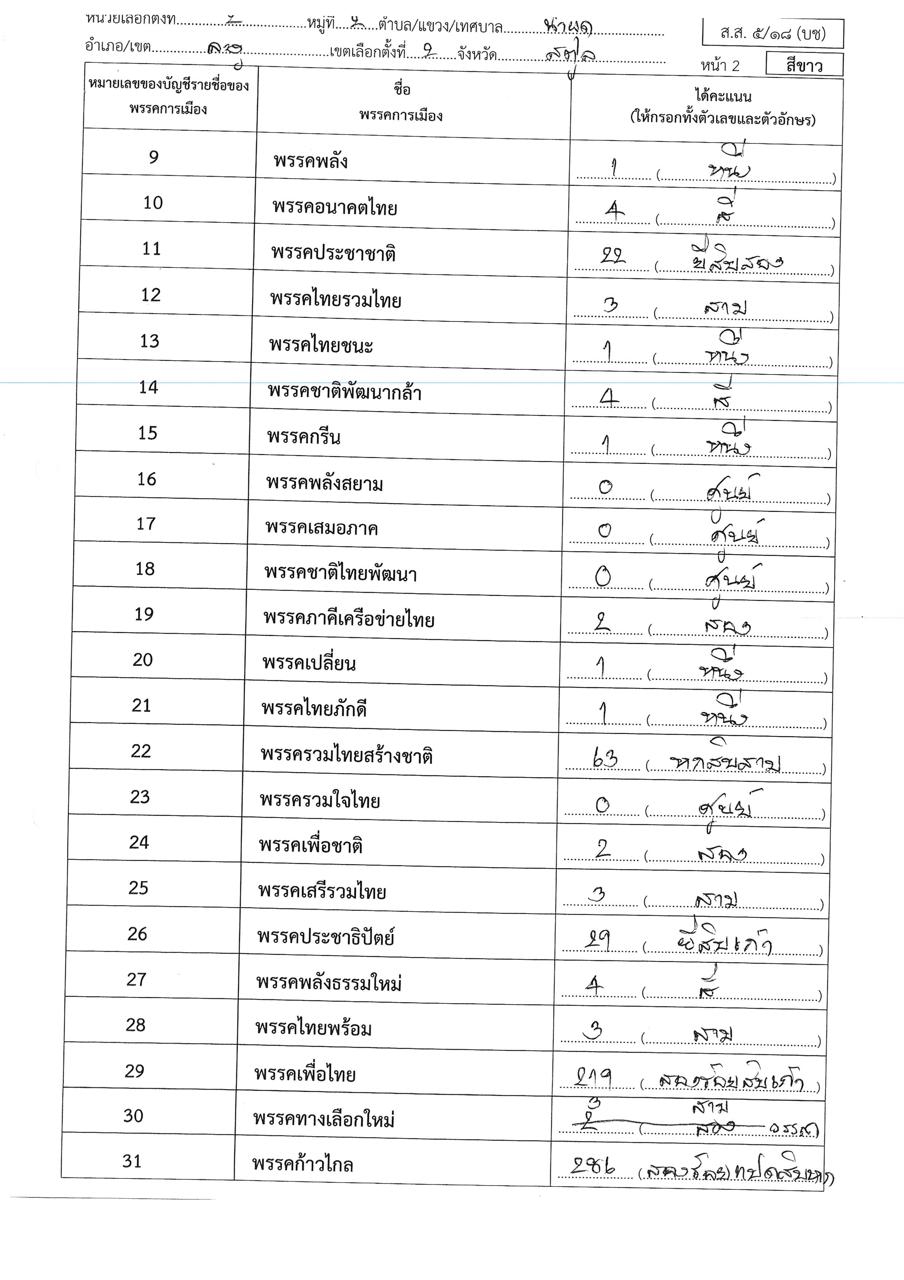 หน่วยเลือกตั้งที่ หมู่ที่ 5 ตำบล/แขวง/เทศบาล น้ำผุด
ส.ส. ๕/๑๘ (บช)
อำเภอ/เขต ละงู เขตเลือกตั้งที่ 2 จังหวัด สตูล
หน้า 2 สีขาว
หมายเลขของบัญชีรายชื่อของพรรคการเมือง ชื่อพรรคการเมือง ได้คะแนน (ให้กรอกทั้งตัวเลขและตัวอักษร)
9 พรรคพลัง 1 (หนึ่ง)
10 พรรคอนาคตไทย 4 (สี่)
11 พรรคประชาชาติ 22 (ยี่สิบสอง)
12 พรรคไทยรวมไทย 3 (สาม)
13 พรรคไทยชนะ 1 (หนึ่ง)
14 พรรคชาติพัฒนากล้า 4 (สี่)
15 พรรคกรีน 1 (หนึ่ง)
16 พรรคพลังสยาม 0 (ศูนย์)
17 พรรคเสมอภาค 0 (ศูนย์)
18 พรรคชาติไทยพัฒนา 0 (ศูนย์)
19 พรรคภาคีเครือข่ายไทย 2 (สอง)
20 พรรคเปลี่ยน 1 (หนึ่ง)
21 พรรคไทยภักดี 1 (หนึ่ง)
22 พรรครวมไทยสร้างชาติ 63 (หกสิบสาม)
23 พรรครวมใจไทย 0 (ศูนย์)
24 พรรคเพื่อชาติ 2 (สอง)
25 พรรคเสรีรวมไทย 3 (สาม)
26 พรรคประชาธิปัตย์ 29 (ยี่สิบเก้า)
27 พรรคพลังธรรมใหม่ 4 (สี่)
28 พรรคไทยพร้อม 3 (สาม)
29 พรรคเพื่อไทย 219 (สองร้อยสิบเก้า)
3 สาม
30 พรรคทางเลือกใหม่ 2 (สอง)
31 พรรคก้าวไกล 286 (สองร้อยแปดสิบหก)